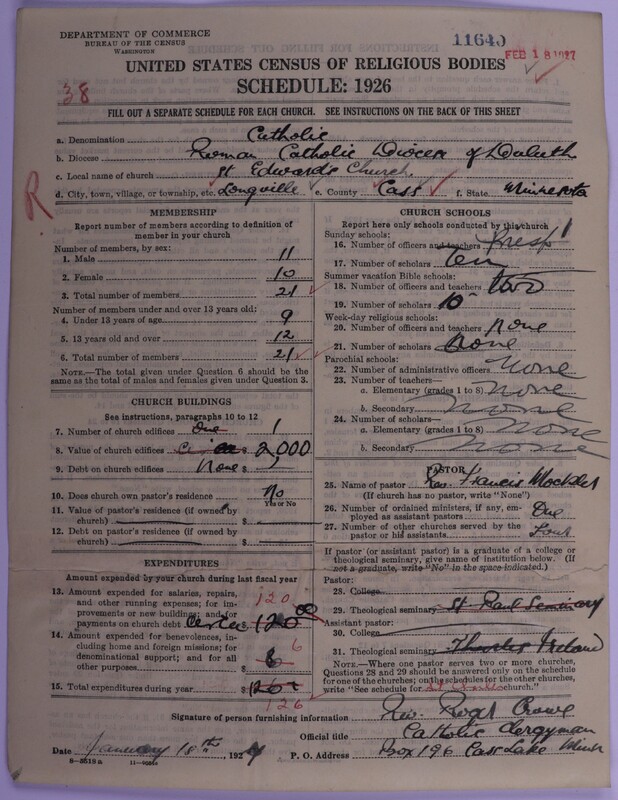 DEPARTMENT OF COMMERCE
BUREAU OF THE CENSUS
WASHINGTON
11640
FEB 18 1927
UNITED STATES CENSUS OF RELIGIOUS BODIES
SCHEDULE: 1926
38
FILL OUT A SEPARATE SCHEDULE FOR EACH CHURCH. SEE INSTRUCTIONS ON THE BACK OF THIS SHEET
a. Denomination Catholic
b. Diocese Roman Catholic Diocese of Duluth
c. Local name of church St Edwards Church
R
d. City, town, village, or township, etc. Longville e. County Cass f. State Minnesota
MEMBERSHIP
Report number of members according to definition of member in your church
Number of members, by sex:
1. Male 11
2. Female 10
3. Total number of members 21
Number of members under and over 13 years old:
4. Under 13 years of age 9
5. 13 years old and over 12
6. Total number of members 21
NOTE.—The total given under Question 6 should be the same as the total of males and females given under Question 3.
CHURCH BUILDINGS
See instructions, paragraphs 10 to 12
7. Number of church edifices One 1
8. Value of church edifices $ 2,000
9. Debt on church edifices None $
10. Does church own pastor's residence No
Yes or No
11. Value of pastor's residence (if owned by church) $
12. Debt on pastor's residence (if owned by church) $
EXPENDITURES
Amount expended by your church during last fiscal year
13. Amount expended for salaries, repairs, and other running expense; for improvements or new buildings; and for payments on church debt 120 $120 00
14. Amount expended for benevolences, including home and foreign missions; for denominational support; and for all other purposes $ 6 6
15. Total expenditures during year $ 126
CHURCH SCHOOLS
Report here only schools conducted by this church
Sunday schools:
16. Number of officers and teachers 1
17. Number of scholars Ten
Summer vacation Bible schools:
18. Number of officers and teachers two
19. Number of scholars 10
Week-day religious schools:
20. Number of officers and teachers None
21. Number of scholars None
Parochial schools:
22. Number of administrative officers None
23. Number of teachers—
a. Elementary (grades 1 to 8) None
b. Secondary None
24. Number of scholars—
a. Elementary (grades 1 to 8) None
b. Secondary None
PASTOR
25. Name of pastor Rev. Francis Mockler
(If church has no pastor, write "None")
26. Number of ordained ministers, if any, employed as assistant pastors One
27. Number of other churches served by the pastor or his assistants Four
If pastor (or assistant pastor) is a graduate of a college or theological seminary, give name of institution below. (If not a graduate, write "No" in the space indicated.)
Pastor:
28. College
29. Theological seminary St Paul Seminary
Assistant pastor:
30. College
31. Theological seminary Thurles Ireland
NOTE.—Where one pastor serves two or more churches, Questions 28 and 29 should be answered only on the schedule for one of the churches; on the schedules for the other churches, write "See schedule for St Charles church."
Signature of person furnishing information Rev. Roger Crowe
Official title Catholic Clergyman
Date January 18th, 192
P. O. Address Box 196 Cass Lake Minn
8—5518 a